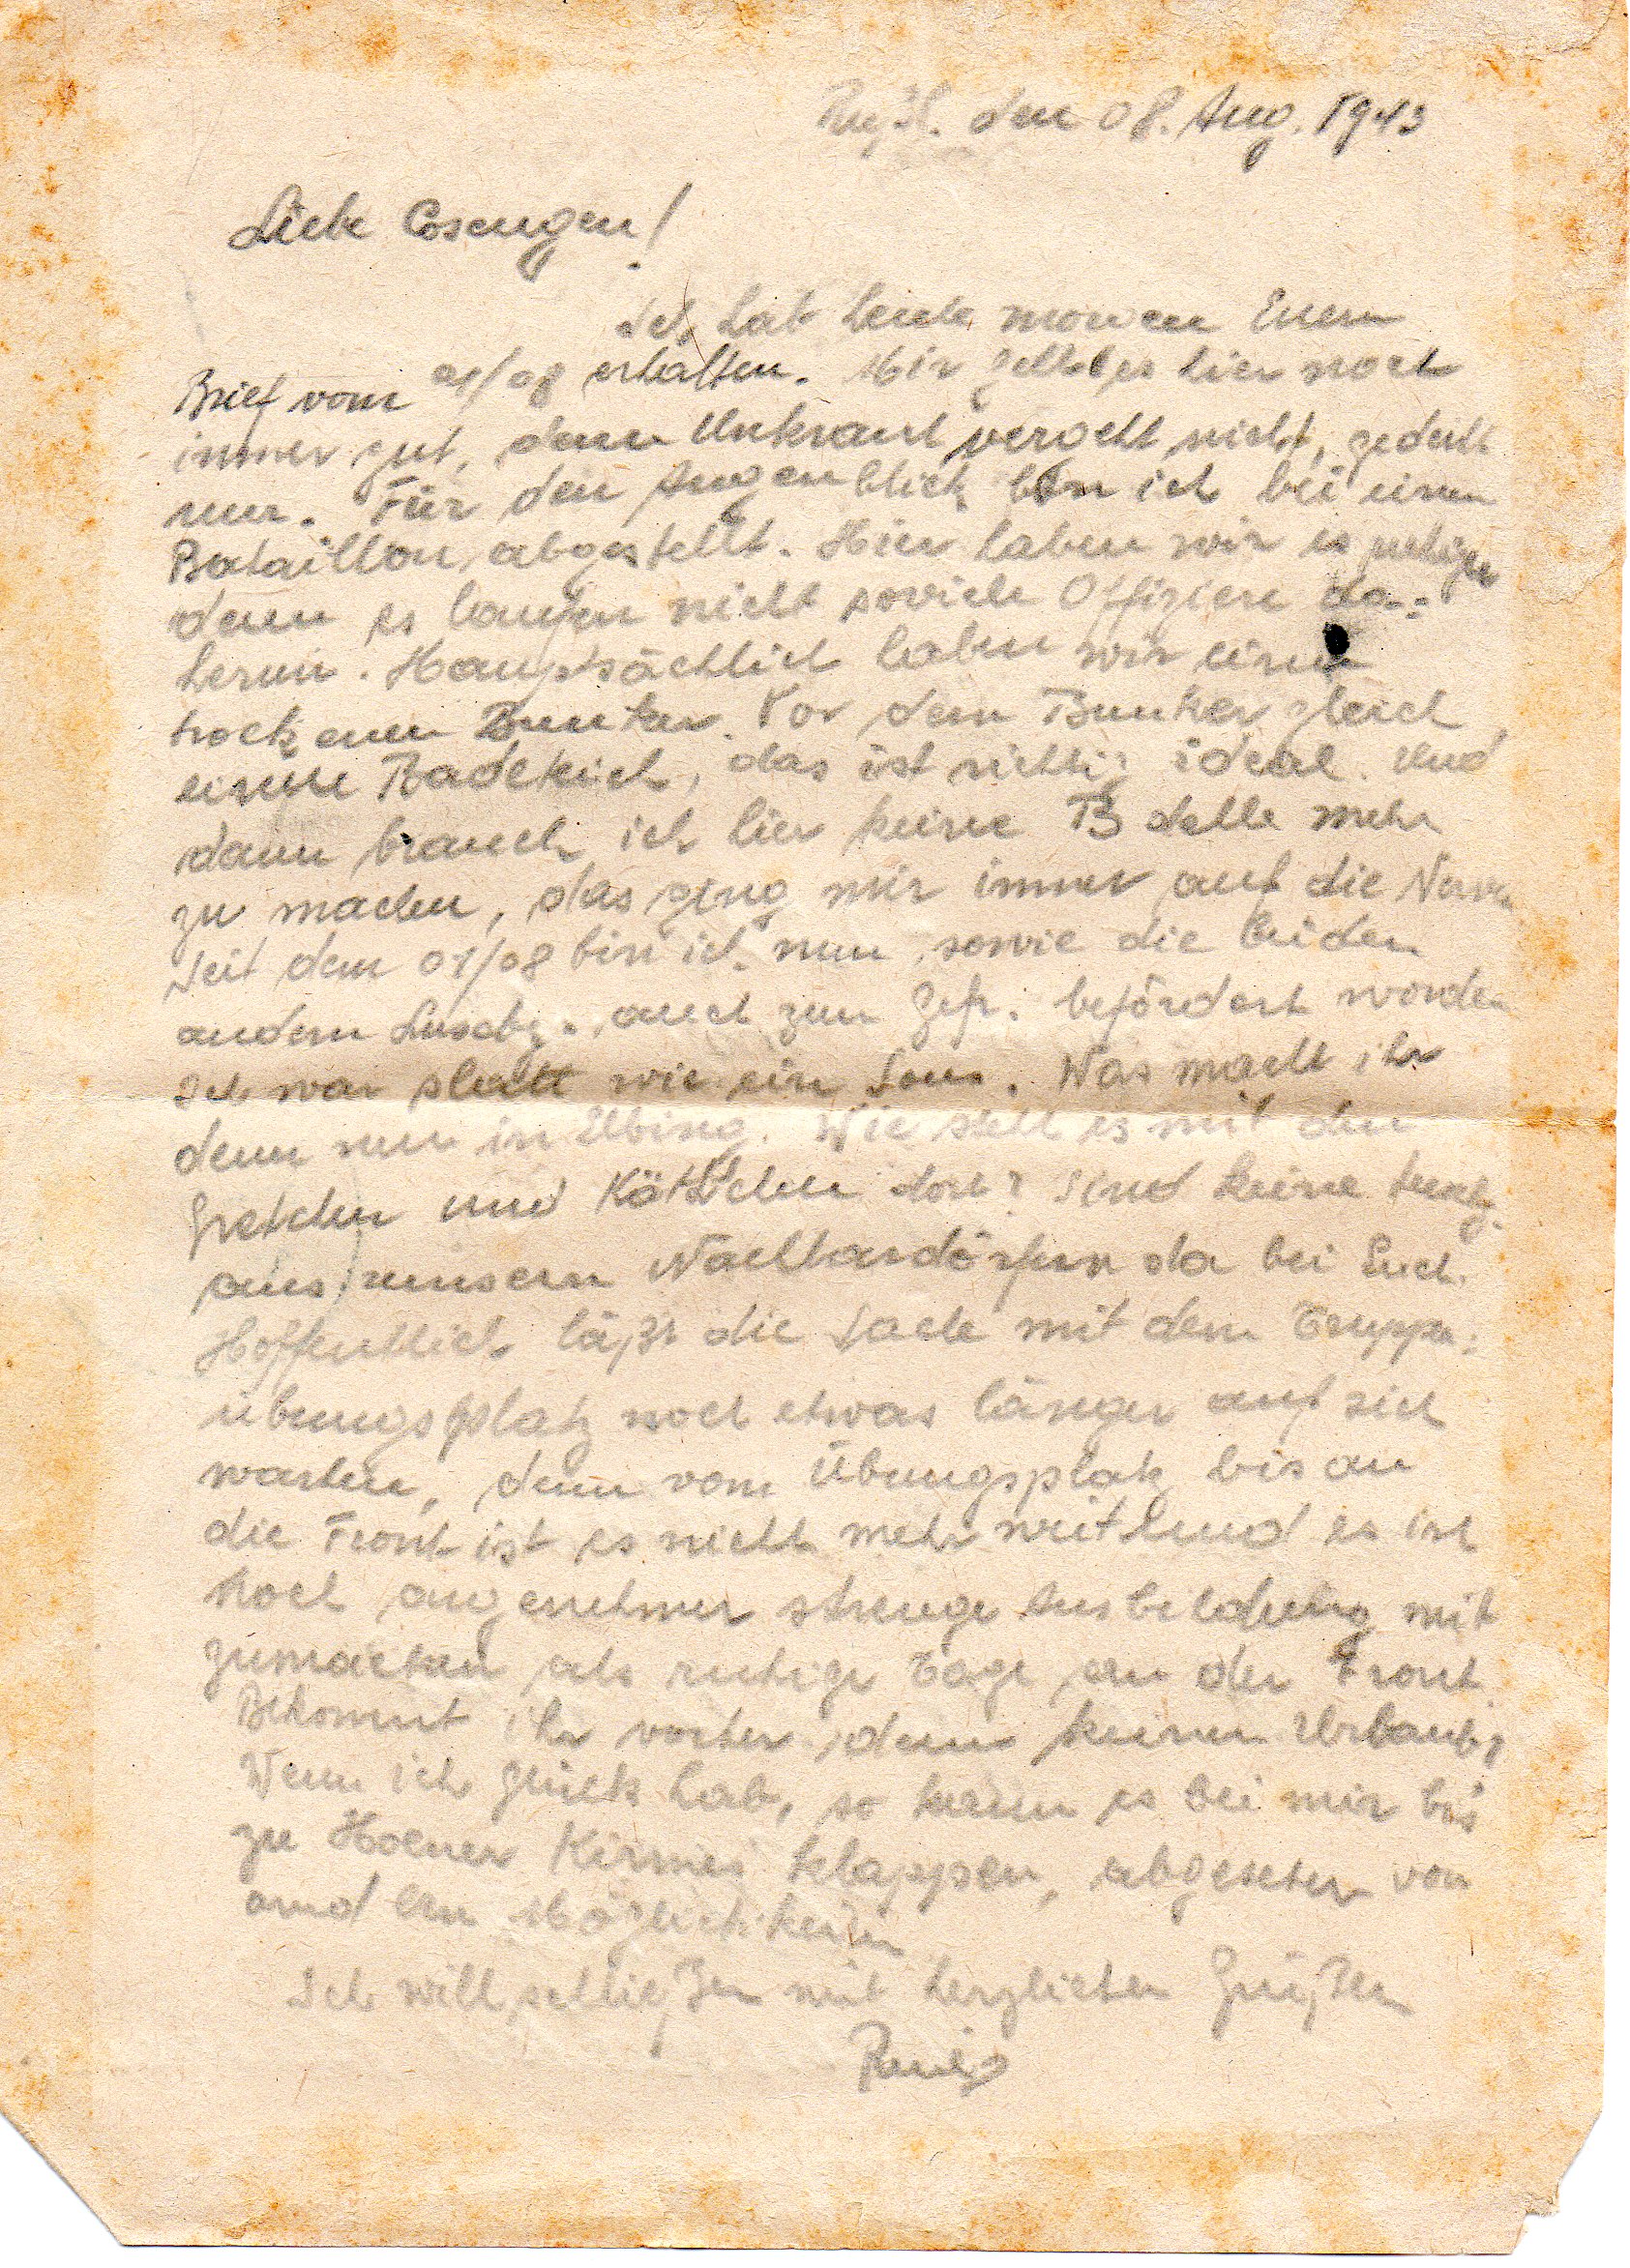 Rußl. den 08. Aug. 1943
Liebe Cosengen!
Ich hab heute morgen Euern
Brief vom 01/08 erhalten. Mir geht es hier noch
immer gut, denn Unkraut vergeht nicht, gedenkt
nur. Für den Augenblick bin ich bei einem
Bataillon abgestellt. Hier haben wir es ruhiger
denn es laufen nicht soviele Offiziere da-
herum. Hauptsächlich haben wir einen
trockenen Bunker. Vor dem Bunker gleich
einen Badeteich, das ist richtig ideal. Und
dann brauch ich hier keine mehr
zu machen, das ging mir immer auf die Nerven
Seit dem 01/08 bin ich nun, sowie die beiden
andern auch zum Gefr. befördert worden
Ich war platt wie ein Lous. Was macht ihr
denn nun in Elbing. Wie steht es mit den
Gretchen und Käthchen dort? Sind keine
aus unsern Nachbardörfern da bei Euch.
Hoffentlich läßt die Sache mit dem Truppen-
übungsplatz noch etwas länger auf sich
warten, denn vom Übungsplatz bis an
die Front ist es nicht mehr weit und es ist
noch angenehmer strenge Ausbildung mit
zumachen als ruhige Tage an der Front.
Bekommt ihr vorher denn keinen Urlaub?
Wenn ich Glück hab, so kann es bei mir bis
zu Kirmes klappen, abgesehen von
andern Möglichkeiten
Ich will schließen mit herzlichen Grüßen
Paul